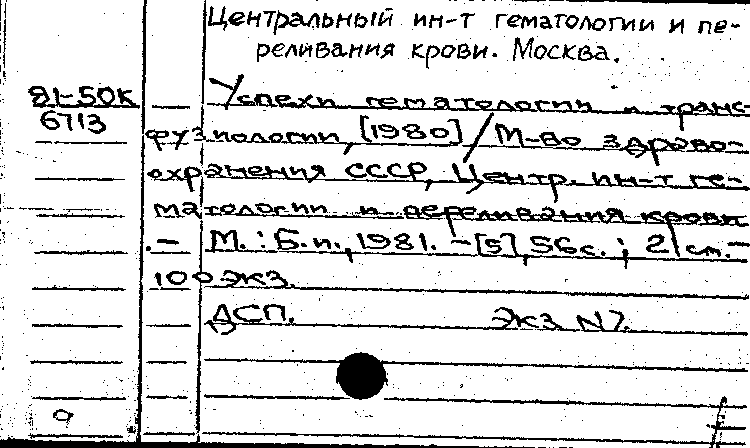 Центральный ин-т гематологии и пе-
реливания крови. Москва.
81-50К Успехи гематологии и транс-
6713 фузиологии, [1980] / М-во здраво-
охранения СССР, Центр. ин-т ге-
матологии и переливания крови
.- М.: Б.и., 1981. - [5], 56 с.; 21 см. -
100 экз.
ДСП. экз N7.